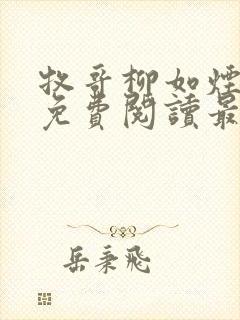 牧哥柳如煙
免費閱讀最
岳秉飛